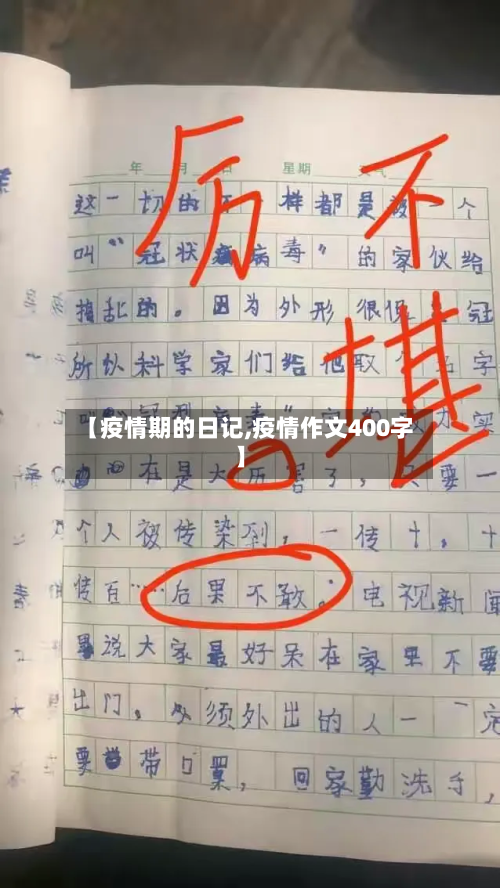 年 月 日 星期 天气
厉不
堪
这一切的不一样都是被一个
叫“冠状病毒”的家伙给
捣乱的。因为外形很像冠
所以科学家们给他取个名字
【疫情期的日记,疫情作文400字
】
在是大历害了,只要一
个人被传染到,一传十,十
传百……后果不敢。电视新闻
说大家最好呆在家里不要
出门。必须外出的人一定
要带口罩,回家勤洗手,